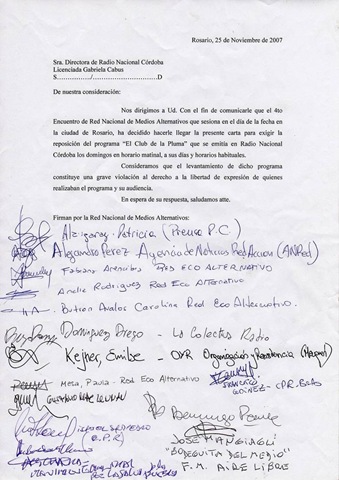 Rosario, 25 de Noviembre de 2007
Sra. Directora de Radio Nacional Córdoba
Licenciada Gabriela Cabus
S............../.............................D
De nuestra consideración:
Nos dirigimos a Ud. Con el fin de comunicarle que el 4to
Encuentro de Red Nacional de Medios Alternativos que sesiona en el día de la fecha
en la ciudad de Rosario, ha decidido hacerle llegar la presente carta para exigir la
reposición del programa "El Club de la Pluma" que se emitía en Radio Nacional
Córdoba los domingos en horario matinal, a sus días y horarios habituales.
Consideramos que el levantamiento de dicho programa
constituye una grave violación al derecho a la libertad de expresión de quienes
realizaban el programa y su audiencia.
En espera de su respuesta, saludamos atte.
Firman por la Red Nacional de Medios Alternativos:
Patricia (Prensa P.C.)
Alejandro Perez Agencia de Noticias Red Accion (ANRed)
Fabiana Arencibia Red ECO ALTERNATIVO
Analia Rodriguez Red Eco Alternativo
Butron Avalos Carolina Red Eco Alternativo.
Dominguez Diego - La Colectiva Radio
Kejner, Emilse - CPR
Mesa, Paula - Red Eco Alternativo
- CPR-BsAs
Domingo
JOSÉ MANGIAGLI
"BODEGUITA DEL MEDIO"
F.M. AIRE LIBRE